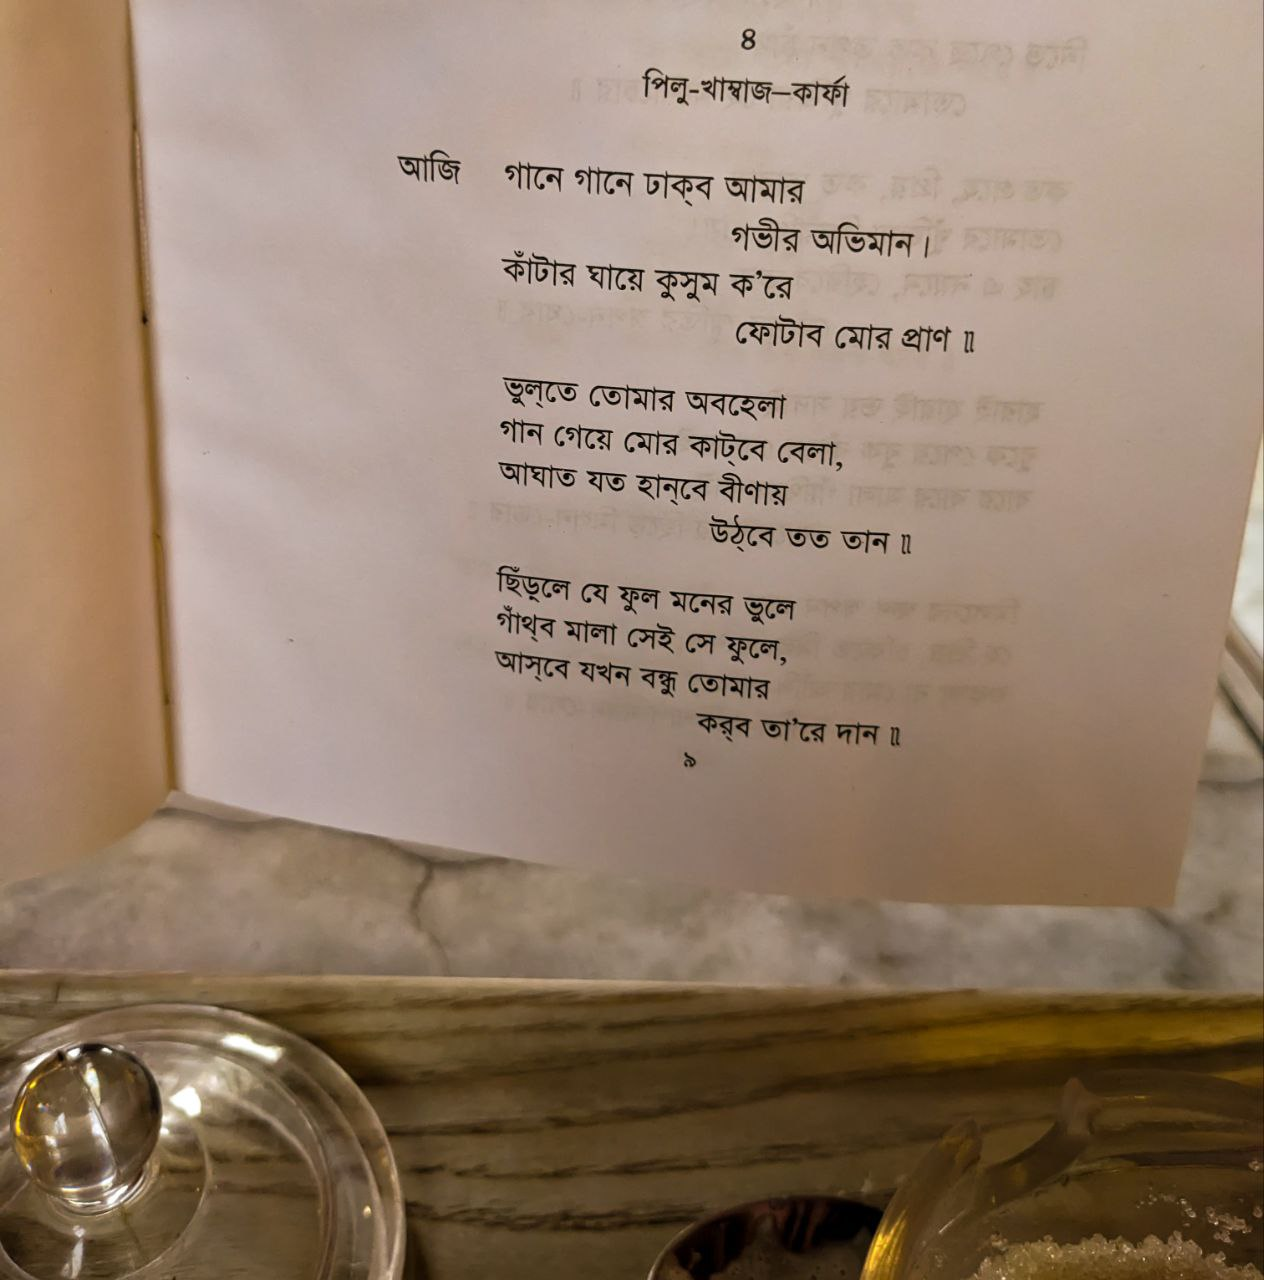 ৪
পিলু-খাম্বাজ—কার্ফা
আজি গানে গানে ঢাক্‌ব আমার
গভীর অভিমান।
কাঁটার ঘায়ে কুসুম ক'রে
ফোটাব মোর প্রাণ॥
ভুল্‌তে তোমার অবহেলা
গান গেয়ে মোর কাট্‌বে বেলা,
আঘাত যত হান্‌বে বীণায়
উঠ্‌বে তত তান॥
ছিঁড়্‌লে যে ফুল মনের ভুলে
গাঁথ্‌ব মালা সেই সে ফুলে,
আস্‌বে যখন বন্ধু তোমার
কর্‌ব তা'রে দান॥
৯